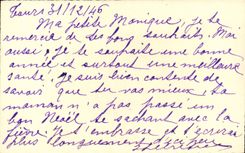 Tours 31/12/46
Ma petite Monique, je te
remercie de tes bons souhaits. Moi
aussi, je te souhaite une bonne
année et surtout une meilleure
santé. Je suis bien contente de
savoir que tu vas mieux. Ta
maman n'a pas passé un
bon Noël se sachant avec la
fièvre. Je t'embrasse et t'écrirai
plus longuement